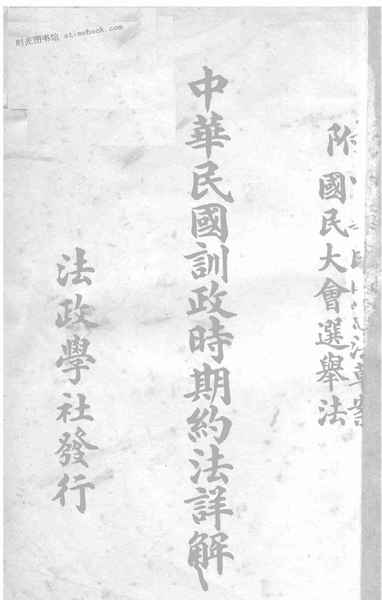 附國民大會選舉法
中華民國訓政時期約法詳解
法政學社發行
时光图书馆 at-mubook.com